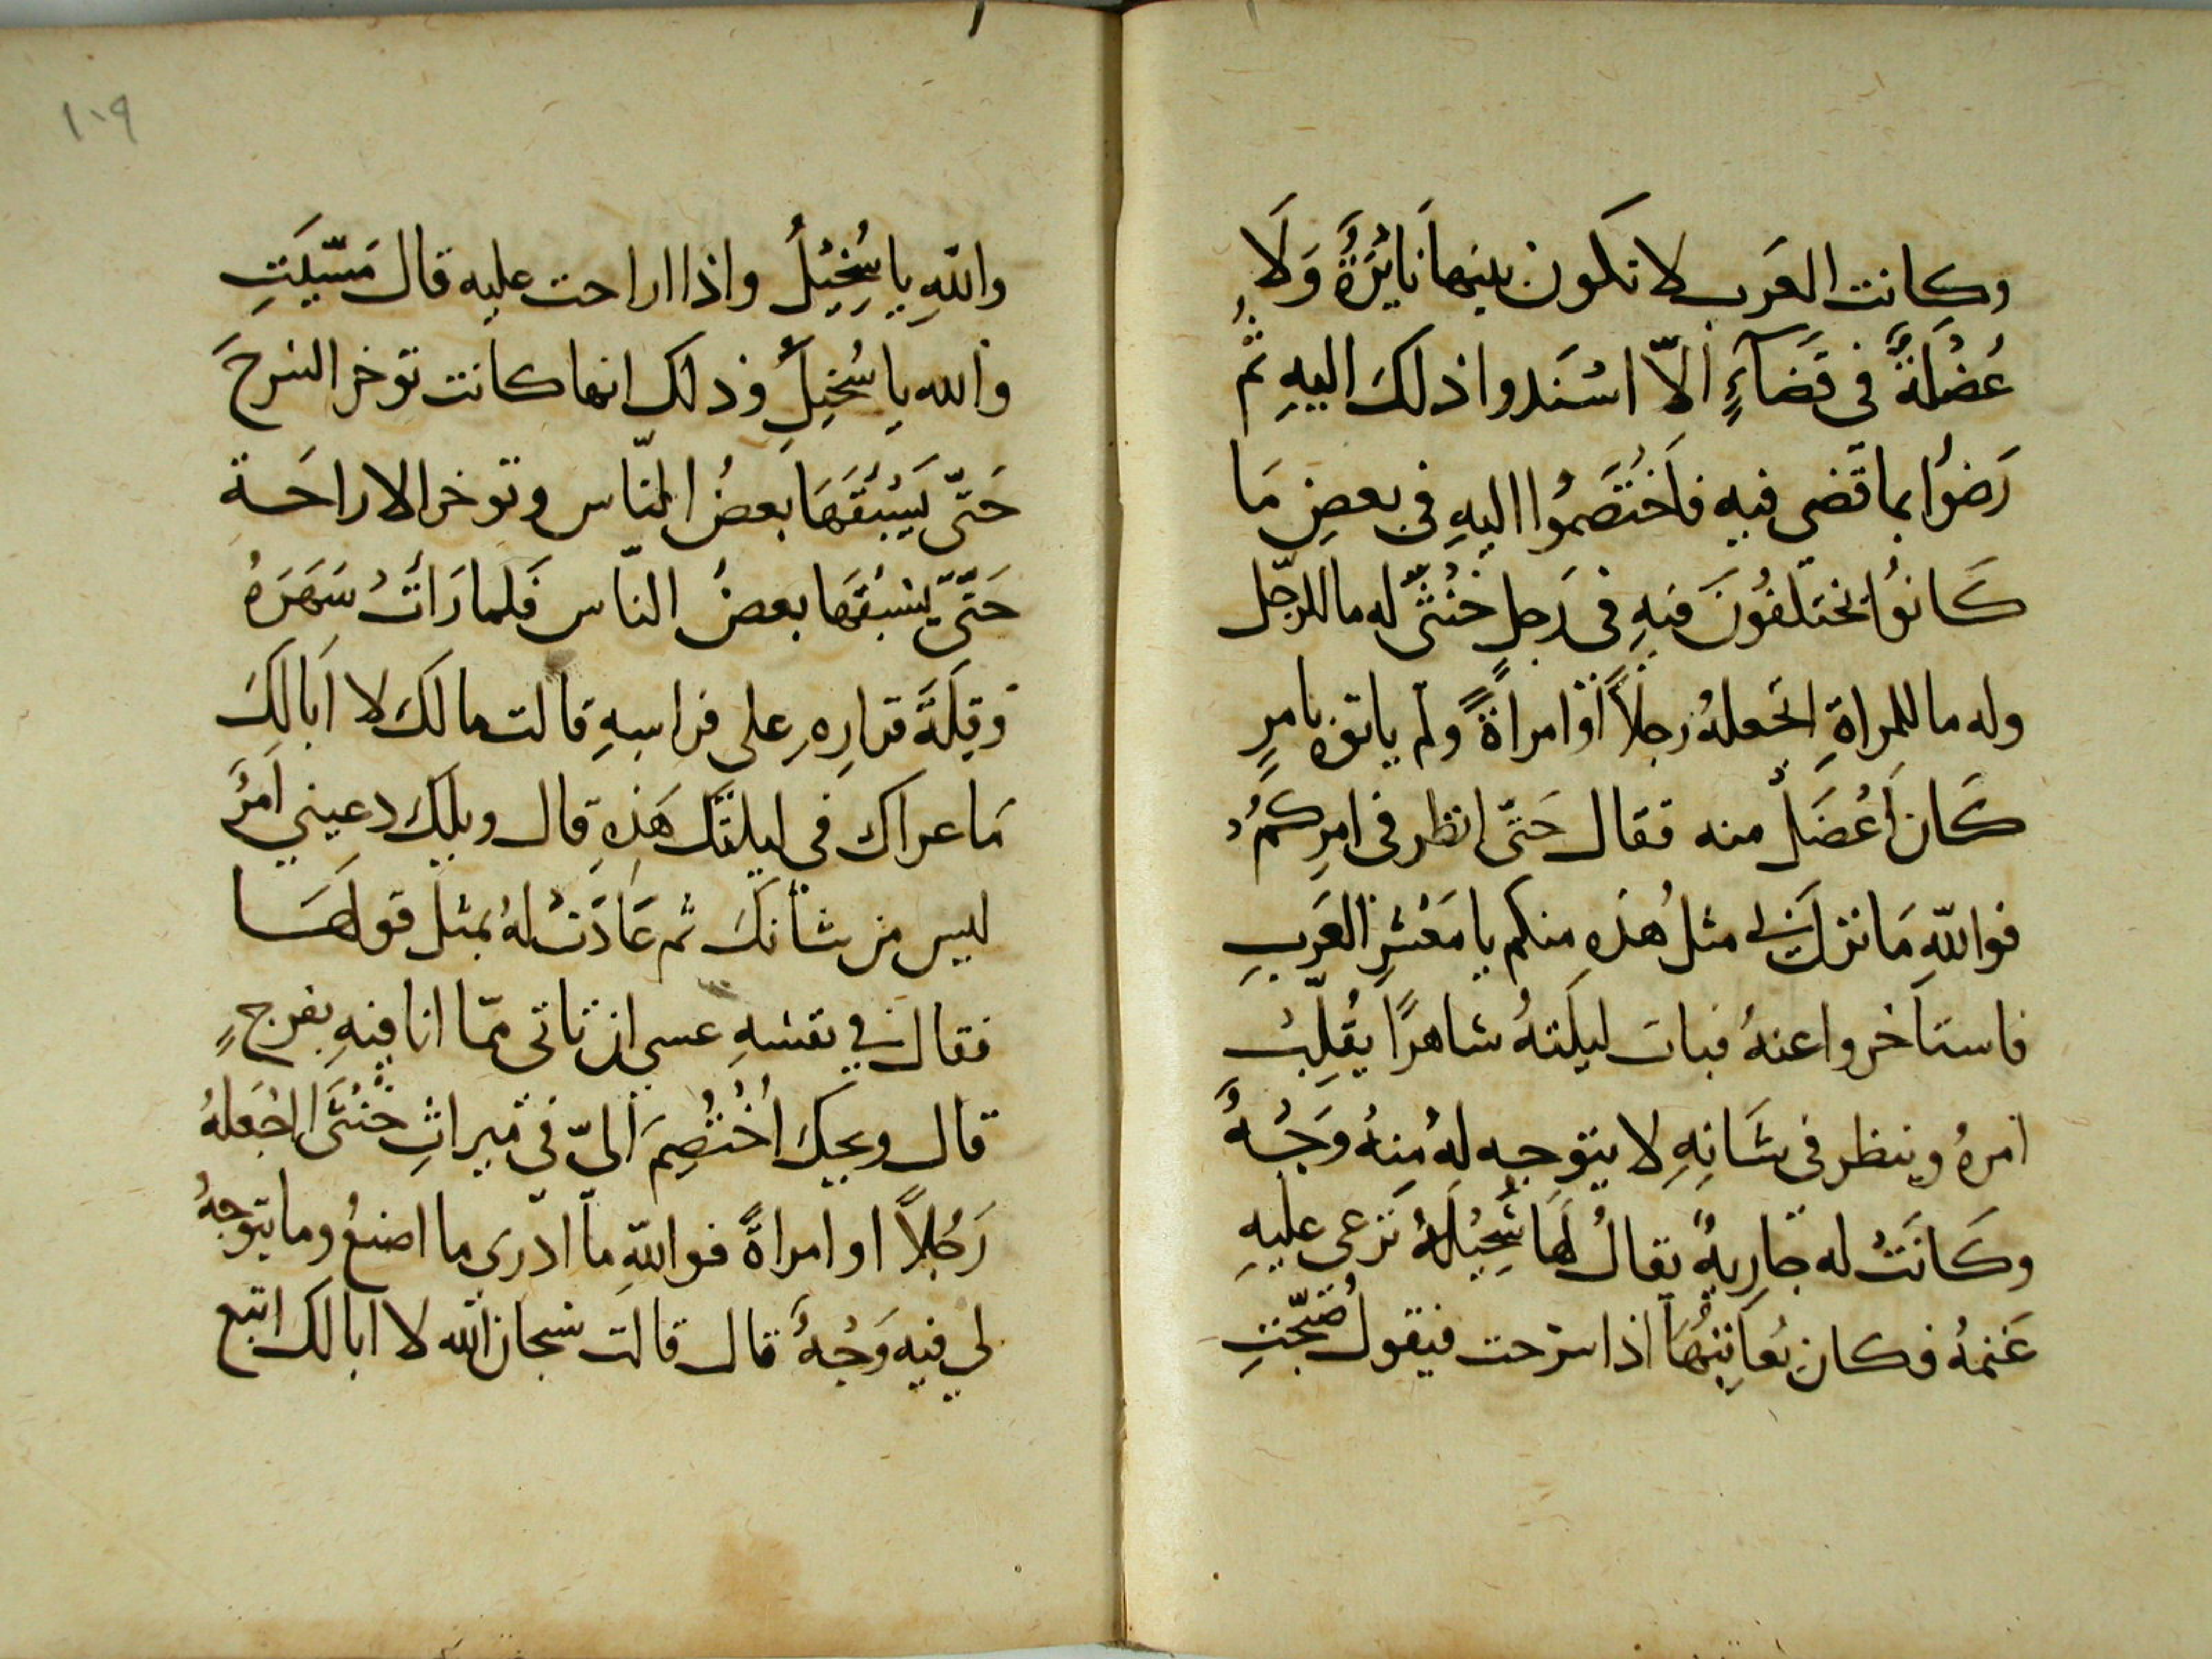 وكانت العَرب لا تكون بينهَا نايُرَةٌ وَلَا
عُضْلَةٌ في قَضَآءٍ الّا اسْنَدوا ذلكَ اليهِ ثُم
رَضوُا بما قَضى فيهِ فَاخْتَصَمُوا اليهِ في بعضِ مَا
كَانوُا يختلفُونَ فيهِ في رَجلٍ خُنْثَى له ما للرّجل
وله ما للمراةِ اتجعلهُ رجلاً أوَ امراَةً ولم ياتوه بامرٍ
كَانَ أعْضَلَ منه فقال حَتّى انظر في امرِكُمْ
فواللهِ مَا نزل بي مثلُ هَذهِ منكم يا مَعْشرِ العَربِ
فاستاَخروا عنهُ فبات ليلَتَهُ شاهرًا يُقَلِّبُ
امرهُ وينظر في شَانهِ لا يتوجه لهُ مِنهُ وَجْهٌ
وكَانَتْ له جَارِيةٌ يقالُ لَهَا سُخَيْلَةٌ تَرعى عليهِ
غَنمهُ فكان يُعَاتِبُهَا اذا سَرحت فيقول صَبّحتِ
١٠٩
واللهِ يا سُخَيْلُ واذا اراحت عليه قال مَسّيَتِ
والله يا سُخَيلُ وذلكَ انها كانت توَخر السْرحَ
حَتّى يَسْبقَهَا بعضُ النّاس وتوَخر الاراحَة
حَتّى يَسْبقَهَا بعضُ النّاس فَلما رَأتْ سَهَرَهُ
وَقِلّةَ قرارِهِ على فراشهِ قالت ما لكَ لا اَبالكَ
مَا عراك في ليلتكَ هَذهِ قال ويلكِ دعيني اَمرٌ
ليس من شأنكِ ثم عَادَت لهُ بمثل قولهَا
فقال في نفسهِ عسى ان تاتى ممّا انا فيهِ بفرجٍ
قال ويحكِ اُخْتُصِمَ اليّ في ميراثِ خُنْثَى ااجْعَلهُ
رَجُلاً او امراةً فواللهِ ما ادرى ما اصنعُ وما يتوجهُ
لي فيه وَجْهٌ قال قالت سُبحان الله لا ابا لكَ اتبع